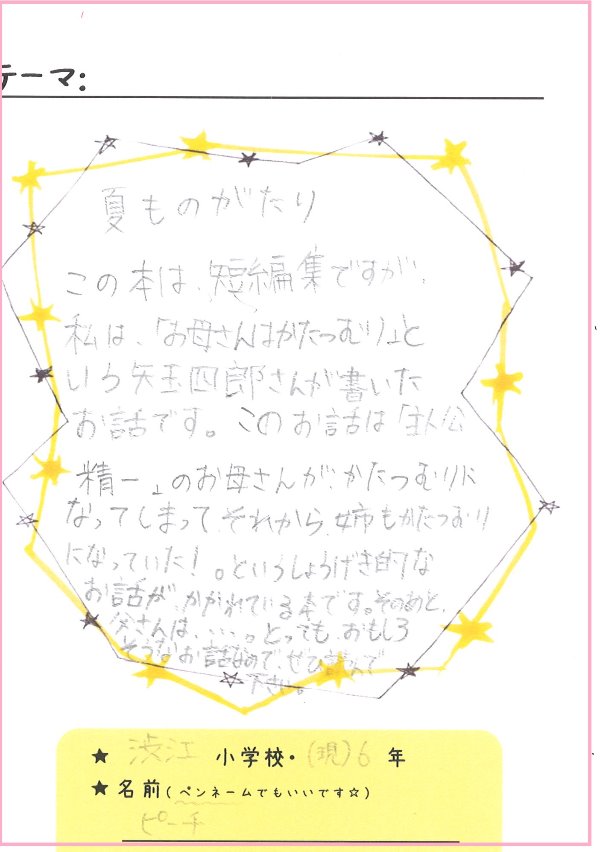 テーマ:
夏ものがたり
この本は、短編集ですが、
私は、「お母さんはかたつむり」と
いう矢玉四郎さんが書いた
お話です。このお話は「主人公
精一」のお母さんが、かたつむりに
なってしまって、それから、姉もかたつむり
になっていた!。というしょうげき的な
お話が、かかれている本です。そのあと、
父さんは、…。とっても、おもしろ
そうなお話なので、ぜひ読んで
下さい。
★ 渋江 小学校・(現)6 年
★ 名前(ペンネームでもいいです☆)
ピーチ